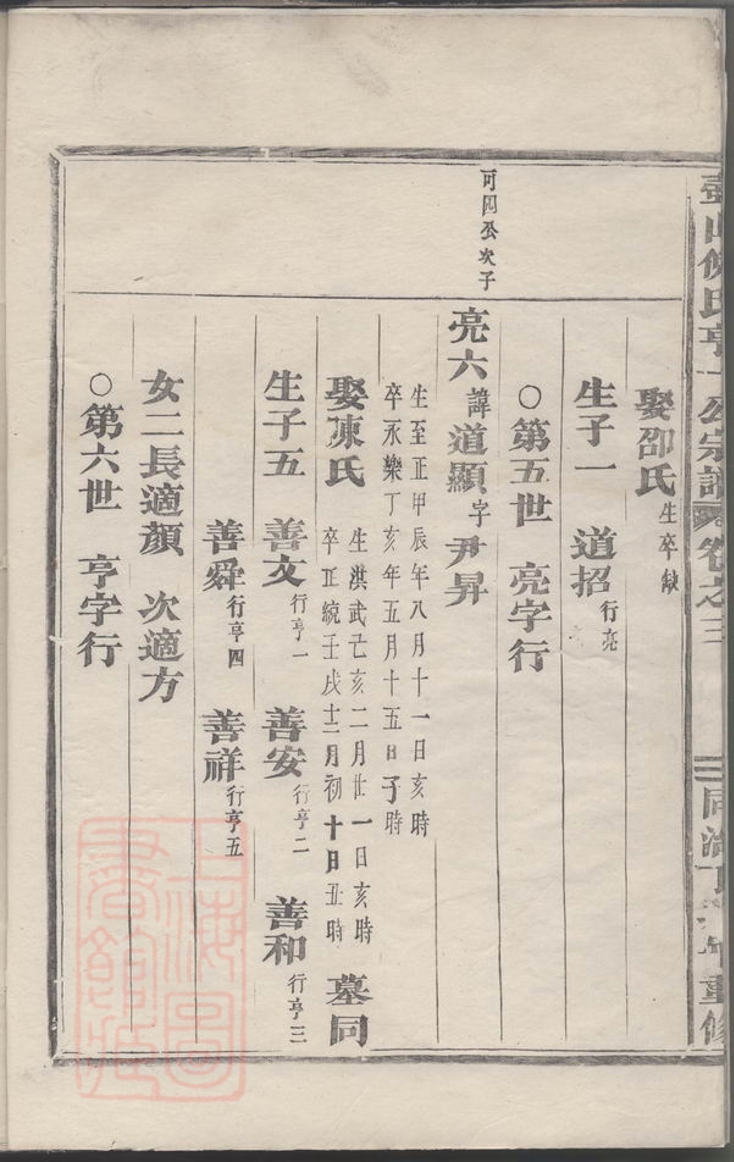 壺山倪氏亨一公宗譜 卷之三 二 同治丁 重修
娶邵氏 生卒缺
生子一 道招 行亮
○第五世 亮字行
可四公次子
亮六 諱道顯 字尹昇
生至正甲辰年八月十一日亥時
卒永樂丁亥年五月十五日子時
娶陳氏 生洪武己亥二月廿一日亥時
卒正統壬戌十二月初十日丑時 墓同
生子五 善文 行亨一 善安 行亨二 善和 行亨三
善舜 行亨四 善祥 行亨五
女二長適顏 次適方
○第六世 亨字行
上海圖
書館藏